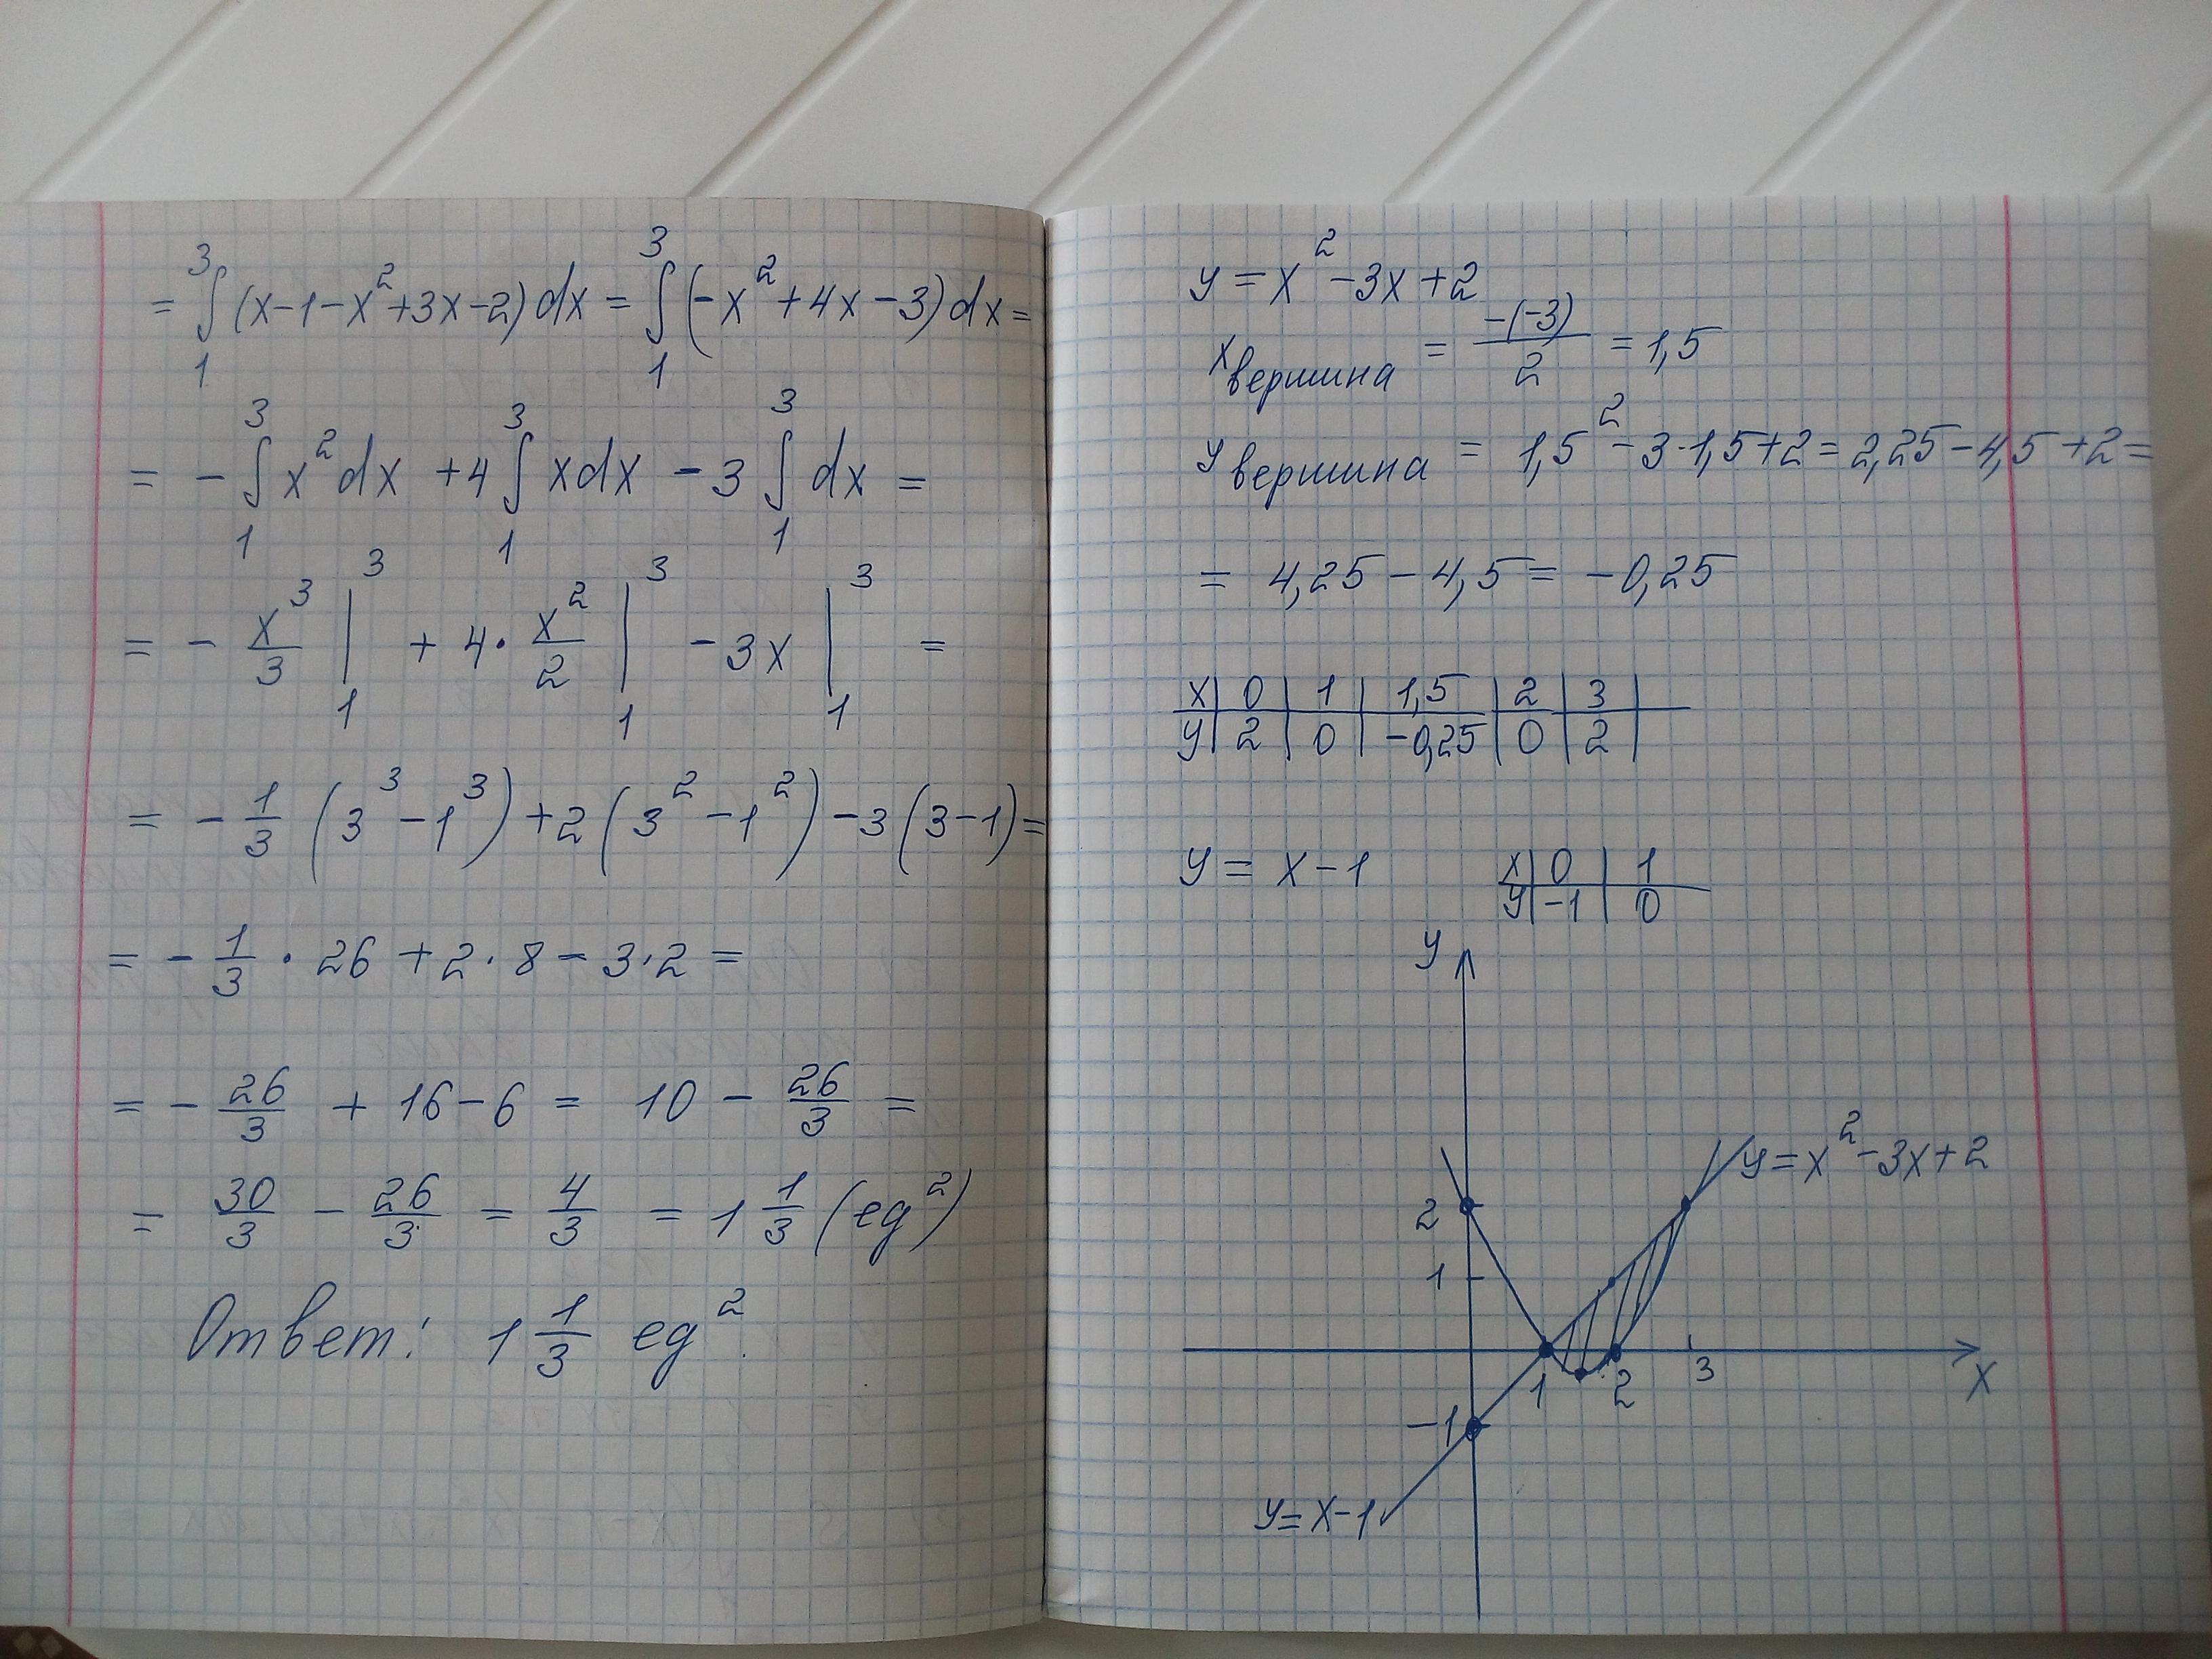 = ∫₁³ (x-1-x²+3x-2) dx = ∫₁³ (-x²+4x-3) dx =
= - ∫₁³ x² dx +4 ∫₁³ x dx - 3 ∫₁³ dx =
= - x³/3 |₁³ + 4 · x²/2 |₁³ - 3x |₁³ =
= - 1/3 (3³ - 1³) + 2 (3² - 1²) - 3 (3-1) =
= - 1/3 · 26 + 2 · 8 - 3 · 2 =
= - 26/3 + 16 - 6 = 10 - 26/3 =
= 30/3 - 26/3 = 4/3 = 1 1/3 (ед²)
Ответ: 1 1/3 ед².
y = x² - 3x + 2
x вершина = -(-3)/2 = 1,5
y вершина = 1,5² - 3·1,5 + 2 = 2,25 - 4,5 + 2 =
= 4,25 - 4,5 = -0,25
x | 0 | 1 | 1,5 | 2 | 3 |
y | 2 | 0 | -0,25 | 0 | 2 |
y = x - 1
x | 0 | 1
y | -1 | 0
y
y = x² - 3x + 2
2
1
1 2 3
x
-1
y = x - 1